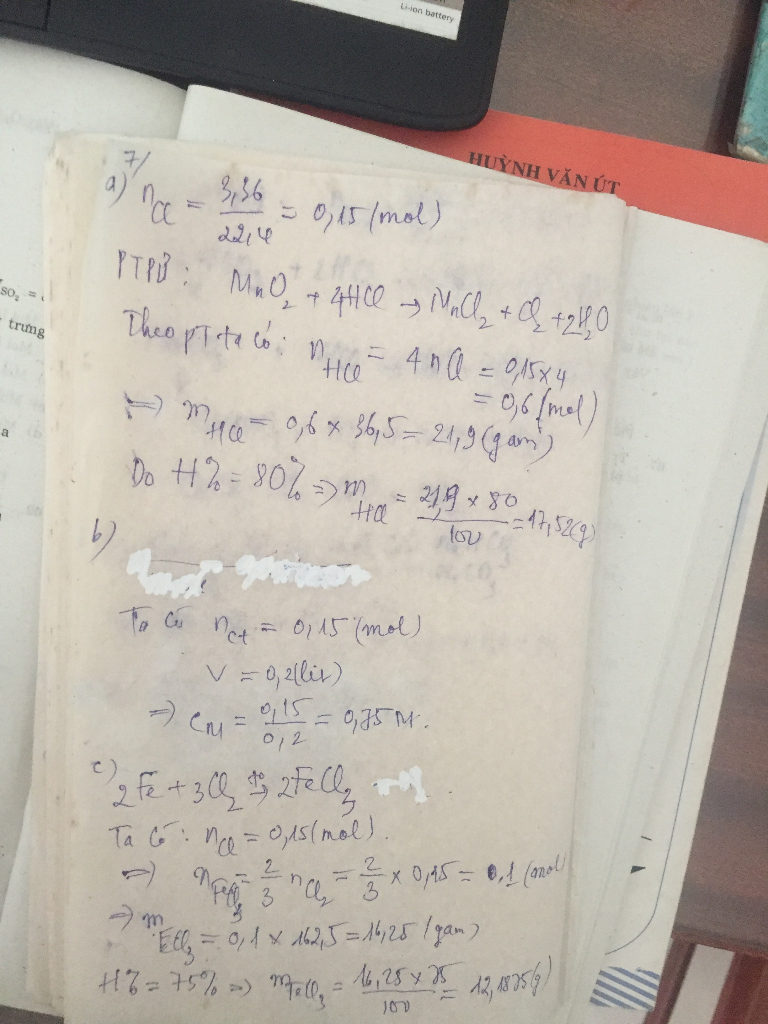 Li-ion battery
HUỲNH VĂN ÚT
SO₂ =
trung
a
7/
a) nCl = 3,36/22,4 = 0,15 (mol)
PTPƯ: MnO₂ + 4HCl → MnCl₂ + Cl₂ + 2H₂O
Theo PT ta có: nHCl = 4 nCl = 0,15 x 4
= 0,6 (mol)
=> mHCl = 0,6 x 36,5 = 21,9 (gam)
Do H% = 80% => mHCl = 21,9 x 80/100 = 17,52 (g)
b)
Ta có nct = 0,15 (mol)
V = 0,2 (lit)
=> CM = 0,15/0,2 = 0,75 M.
c) 2Fe + 3Cl₂ t°→ 2FeCl₃
Ta có: nCl = 0,15 (mol).
=> nFeCl₃ = 2/3 nCl₂ = 2/3 x 0,15 = 0,1 (mol
=> m FeCl₃ = 0,1 x 162,5 = 16,25 (gam)
H% = 75% => mFeCl₃ = 16,25 x 75/100 = 12,1875 (g)